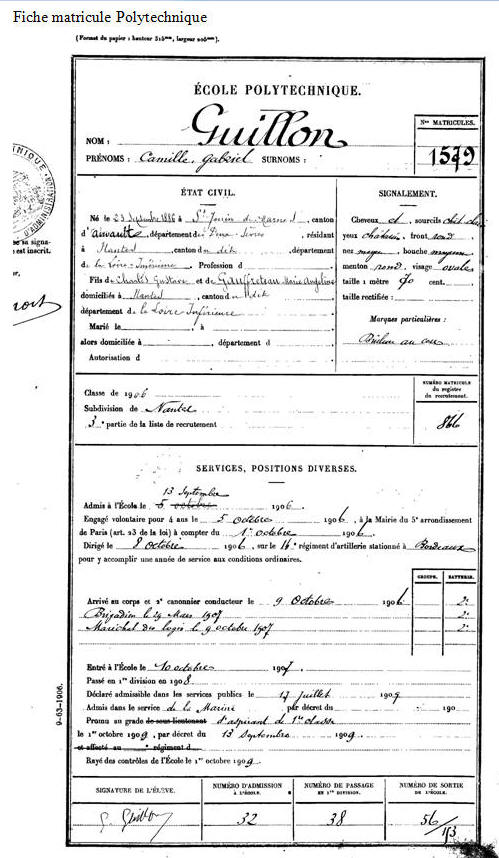 Fiche matricule Polytechnique
(Format du papier : hauteur 315mm, largeur 205mm).
ÉCOLE POLYTECHNIQUE.
Guillon
NOM :
PRÉNOMS : Camille, Gabriel SURNOMS :
Nos MATRICULES.
1579
ÉTAT CIVIL.
Né le 23 Septembre 1886 à St Jouin de Marnes, canton
d'Airvault, département des Deux Sèvres, résidant
à Nantes, canton du dit, département
de la Loire-Inférieure, Profession d
Fils de Charles Gustave et de Gauffreteau Marie Angeline
domiciliés à Nantes, canton du dit
département de la Loire Inférieure
Marié le , à
alors domiciliée à , département d
Autorisation d
SIGNALEMENT.
Cheveux et sourcils
yeux châtain, front rond
nez moyen, bouche moyenne
menton rond, visage ovale
taille 1 mètre 70 cent.
taille rectifiée :
Marques particulières :
au cou
sa signa-
est inscrit.
Classe de 1906
Subdivision de Nantes
3e partie de la liste de recrutement
NUMÉRO MATRICULE
du registre
du recrutement.
866
SERVICES, POSITIONS DIVERSES.
13 Septembre
Admis à l'École le 5 octobre 1906.
Engagé volontaire pour 4 ans le 5 octobre 1906, à la Mairie du 5e arrondissement
de Paris (art. 23 de la loi) à compter du 1er octobre 1906.
Dirigé le 8 octobre 1906, sur le régiment d'artillerie stationné à Bordeaux
pour y accomplir une année de service aux conditions ordinaires.
GROUPE. BATTERIE.
Arrivé au corps et 2e canonnier conducteur le 9 Octobre 1906 2e
Brigadier le 29 Mars 1907 2e
Maréchal des logis le 9 octobre 1907 2e
Entré à l'École le 10 octobre 1907.
Passé en 1re division en 1908.
Déclaré admissible dans les services publics le 17 juillet 1909
Admis dans le service de la Marine par décret du 190
Promu au grade de sous-lieutenant d'aspirant de 1re classe
le 1er octobre 1909, par décret du 13 Septembre 1909.
et affecté au régiment d
Rayé des contrôles de l'École le 1er octobre 1909.
9-63-1906.
SIGNATURE DE L'ÉLÈVE.
G. Guillon
NUMÉRO D'ADMISSION
À L'ÉCOLE.
32
NUMÉRO DE PASSAGE
EN 1re DIVISION.
38
NUMÉRO DE SORTIE
DE L'ÉCOLE.
56/173